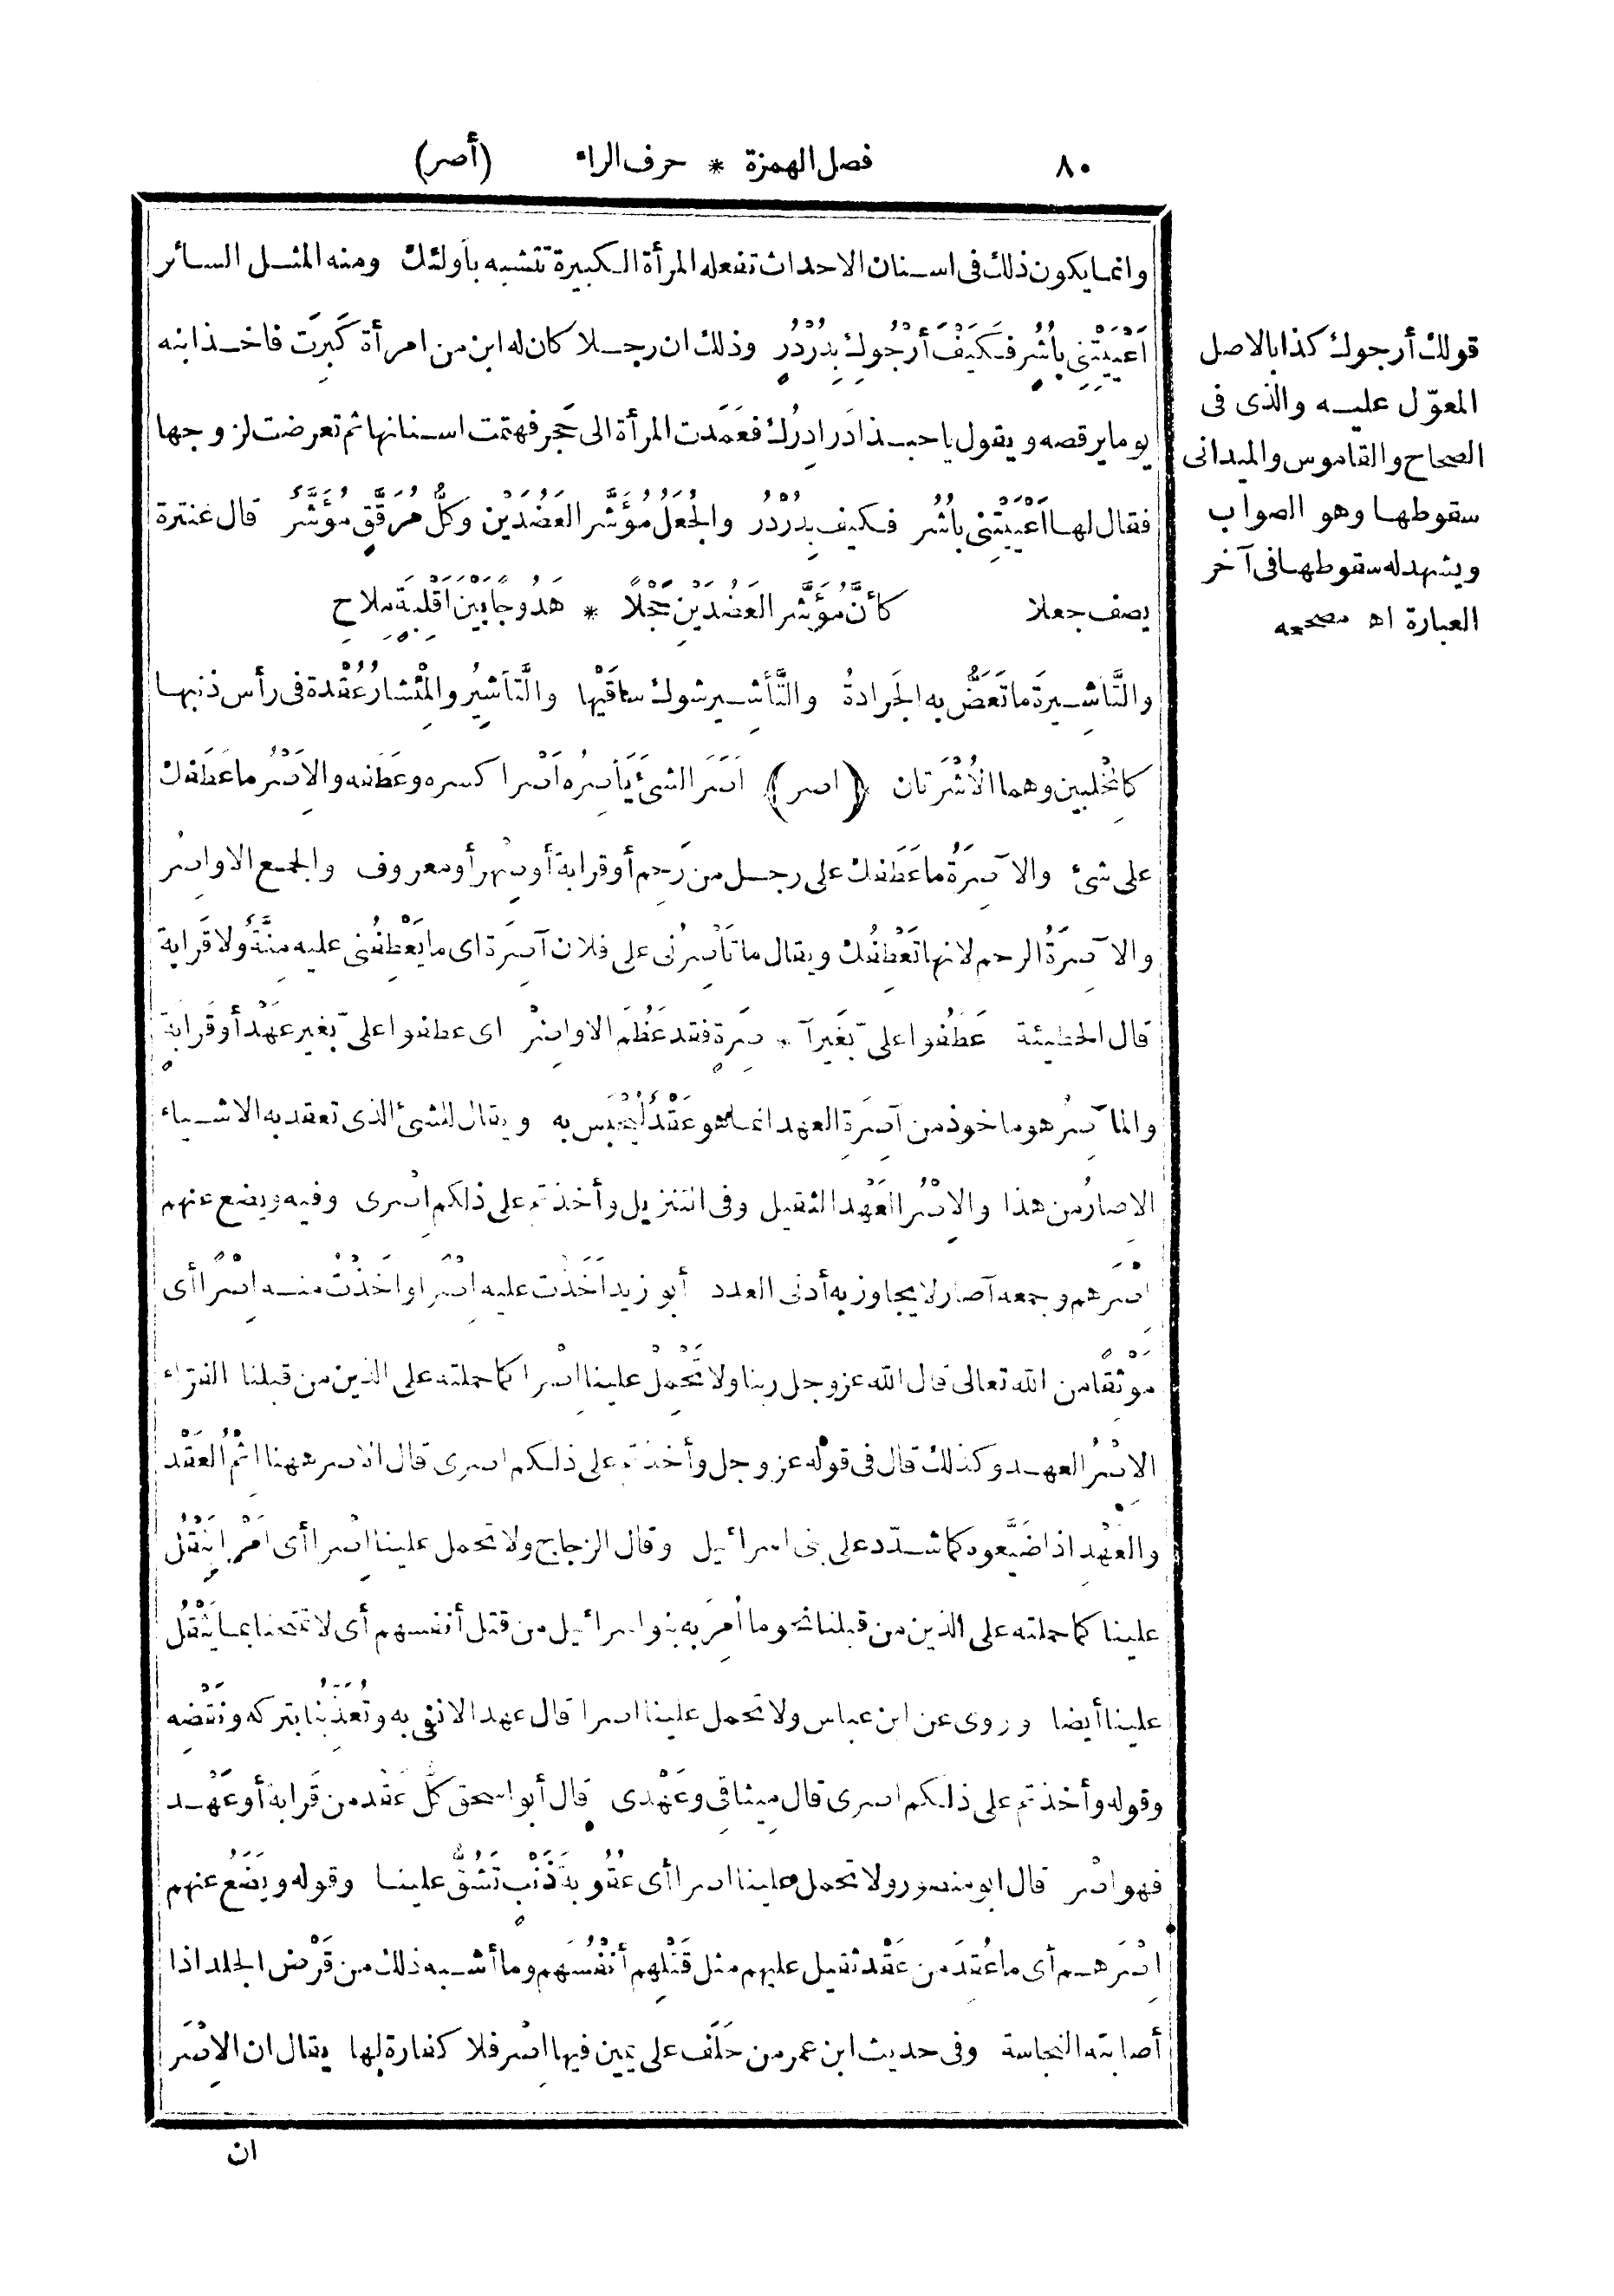 ٨٠ فصل الهمزة * حرف الراء (أصر)
وانما يكون ذلك فى اسنان الاحداث تفعله المرأة الكبيرة تتشبه بأولئك ومنه المثل السائر
أَعْيَيْتِنِى بأُشُرٍ فكَيْفَ أَرْجُوكِ بِدُرْدُرٍ وذلك ان رجلا كان له ابن من امرأة كَبِرَت فاخذ ابنه
يوما يرقصه ويقول يا حبذا دَرادِرُك فعَمَدَت المرأة الى حَجَر فهتمت اسنانها ثم تعرضت لزوجها
فقال لها أَعْيَيْتِنى بأُشُر فكيف بِدُرْدُر والجُعَلُ مُؤَشَّر العَضُدَيْن وكُلُّ مُرَقَّقٍ مُؤَشَّرٌ قال عنترة
يصف جعلا كأنَّ مُؤَشَّر العَضُدَيْنِ جَحْلاً * هَدُوجًا بَيْنَ أَقْلِبَةٍ مِلاحِ
والتَّأْشِيرَة ما تَعَضُّ به الجَرادةُ والتَّأْشِير شوك ساقَيْها والتَّأْشِيرُ والمِئْشارُ عُقْدة فى رأس ذنبها
كالمِخْلبين وهما الأُشْرَتان (اصر) أَصَرَ الشىئَ يَأْصِرُه أَصْرا كسره وعَطَفه والاَصْرُ ما عَطَفك
على شئ والآصِرَةُ ما عَطَفك على رجل من رَحِم أو قرابة أو صِهْر أو معروف والجمع الاواصِر
والآصِرَةُ الرحم لانها تَعْطِفُك ويقال ما تَأْصِرُنى على فلان آصِرَة اى ما يَعْطِفُنى عليه مِنَّةٌ ولا قَرابة
قال الحطيئة عَطَفُوا علىّ بغَيرِ آ * صِرَةٍ فقد عَظُمَ الاواصِرْ اى عطفوا علىّ بغير عَهْد أو قَرابةٍ
والمآصِرُ هو ماخوذ من آصِرَةِ العهد انما هو عَقْدٌ ليُحْبَس به ويقال للشئ الذى تعقد به الاشياء
الاصارُ من هذا والاِصْرُ العَهْد الثقيل وفى التنزيل وأخذتم على ذلكم اِصْرى وفيه ويضع عنهم
اِصْرَهم وجمعه آصار لا يجاوز به أدنى العدد أبو زيد أَخَذْت عليه اِصْرًا وأَخَذْتُ منه اِصْرًا أى
مَوْثِقًا من الله تعالى قال الله عز وجل ربنا ولا تَحْمِلْ علينا اِصْرا كما حملته على الذين من قبلنا الفرّاء
الاِصْرُ العهد وكذلك قال فى قوله عز وجل وأخذتم على ذلكم اصرى قال الاصر ههنا اِثْمُ العَقْد
والعَهْدِ اذا ضَيَّعوه كما شدّد على بنى اسرائيل وقال الزجاج ولا تحمل علينا اِصْرا أى أَمْرا يَثْقُل
علينا كما حملته على الذين من قبلنا نحو ما أُمِرَ به بنو اسرائيل من قتل أنفسهم أى لا تَمْتَحِنا بما يَثْقُل
علينا أيضا وروى عن ابن عباس ولا تحمل علينا اصرا قال عهدا لا نفى به وتُعَذِّبُنا بتركه ونَقْضِه
وقوله وأخذتم على ذلكم اصرى قال مِيثاقى وعَهْدى قال أبو اسحق كلُّ عَقْد من قَرابة أو عَهْد
فهو اِصْر قال ابو منصور ولا تحمل علينا اصرا أى عُقُوبةَ ذَنْبٍ تَشُقُّ علينا وقوله ويَضَعُ عنهم
اِصْرَهم أى ما عُقِدَ من عَقْد ثقيل عليهم مثل قَتْلِهم أنفُسَهم وما أشبه ذلك من قَرْض الجلد اذا
أصابته النجاسة وفى حديث ابن عمر من حَلَف على يمين فيها اِصْر فلا كفارة لها يقال ان الاِصْر
ان
قولك أرجوك كذا بالاصل
المعوّل عليه والذى فى
الصحاح والقاموس والميدانى
سقوطها وهو الصواب
ويشهد له سقوطها فى آخر
العبارة اه مصححه